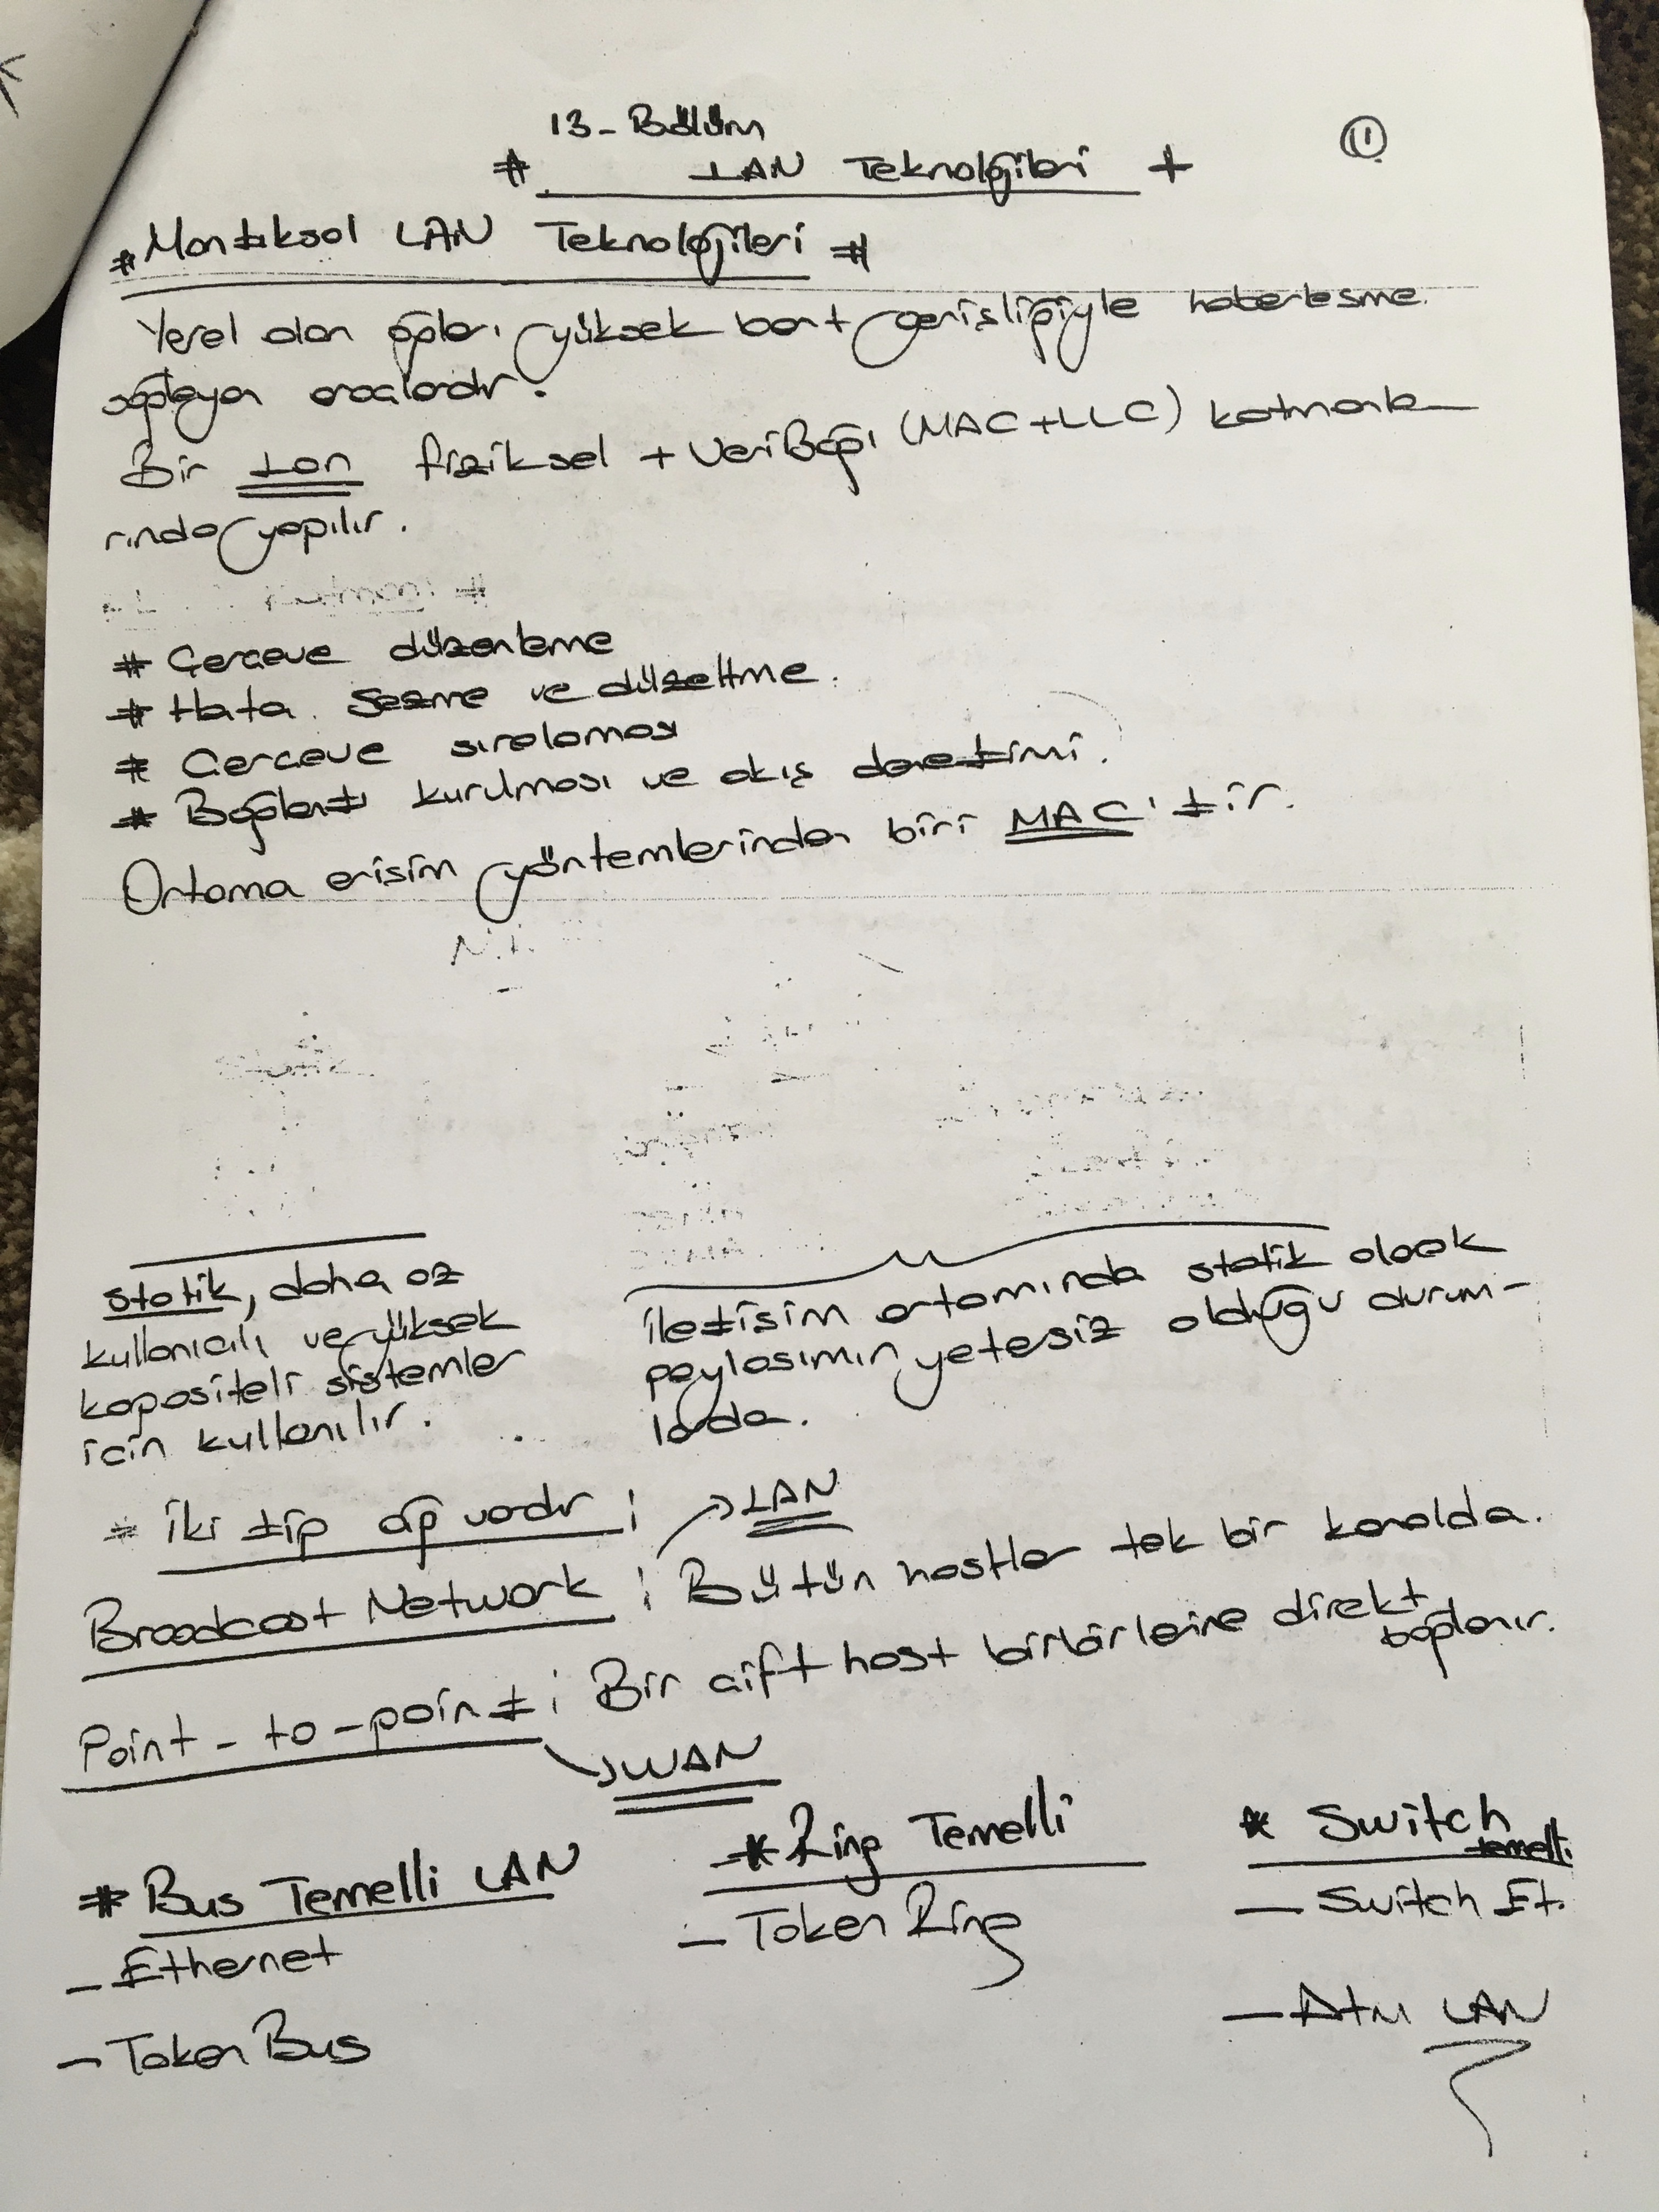 13- Bölüm
⑪
# LAN Teknolojileri +
# Mantıksal LAN Teknolojileri #
Yerel alan ağları yüksek bant genişliğiyle haberleşme
sağlayan araçlardır.
Bir Lan fiziksel + Veri Bağı (MAC+LLC) katmanla
rında yapılır.
# Çerçeve düzenleme
# Hata sezme ve düzeltme.
# Çerçeve sıralaması
# Bağlantı kurulması ve akış denetimi.
Ortama erisim yöntemlerinden biri MAC'tir.
statik, daha az
kullanıcılı ve yüksek
kapasiteli sistemler
icin kullanılır.
iletisim ortamında statik olarak
paylasımın yetesiz olduğu durum-
larda.
* İki tip ağ vardır;
→ LAN
Broadcast Network ; Bütün hostlar tek bir kanalda.
Point-to-point ; Bir çift host birbirlerine direkt
bağlanır.
→ WAN
# Bus Temelli LAN
- Ethernet
- Token Bus
* Ring Temelli
- Token Ring
* Switch
temelli
- Switch Et.
- Atm LAN